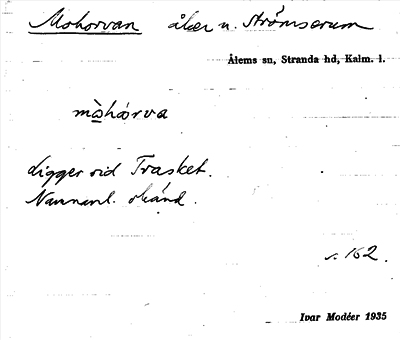 Mohorvan åker u. Strömserum
Ålems sn, Stranda hd, Kalm. l.
mòhórva
Ligger vid Trasket.
Namnanl. okänd.
s. 162.
Ivar Modéer 1935